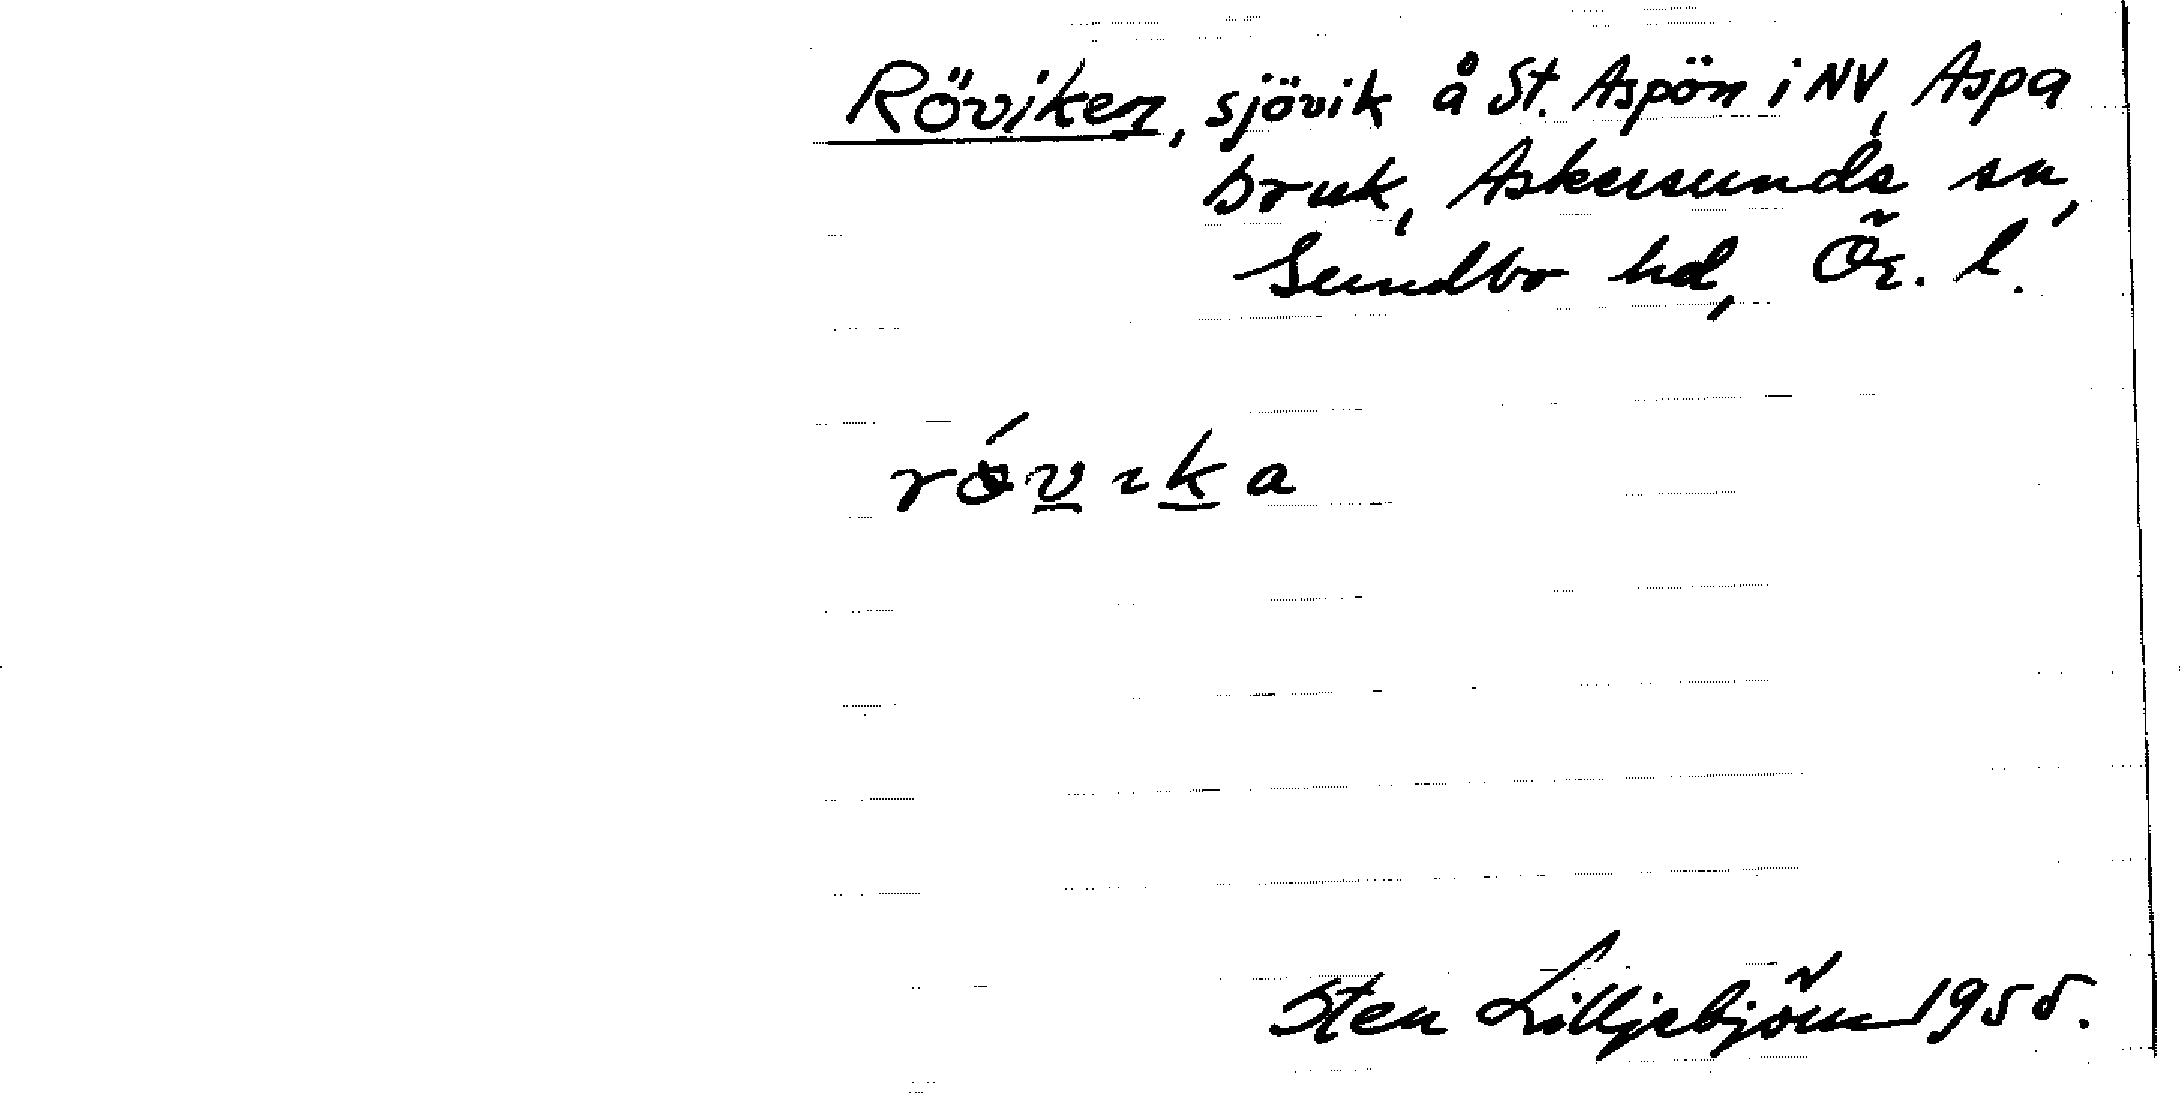 Röviken, sjövik å St. Aspön i NV, Aspa
bruk, Askersunds sn,
Sundbo hd, Ör. l.
rǿvıka
Sten Lilljebjörn 1955.